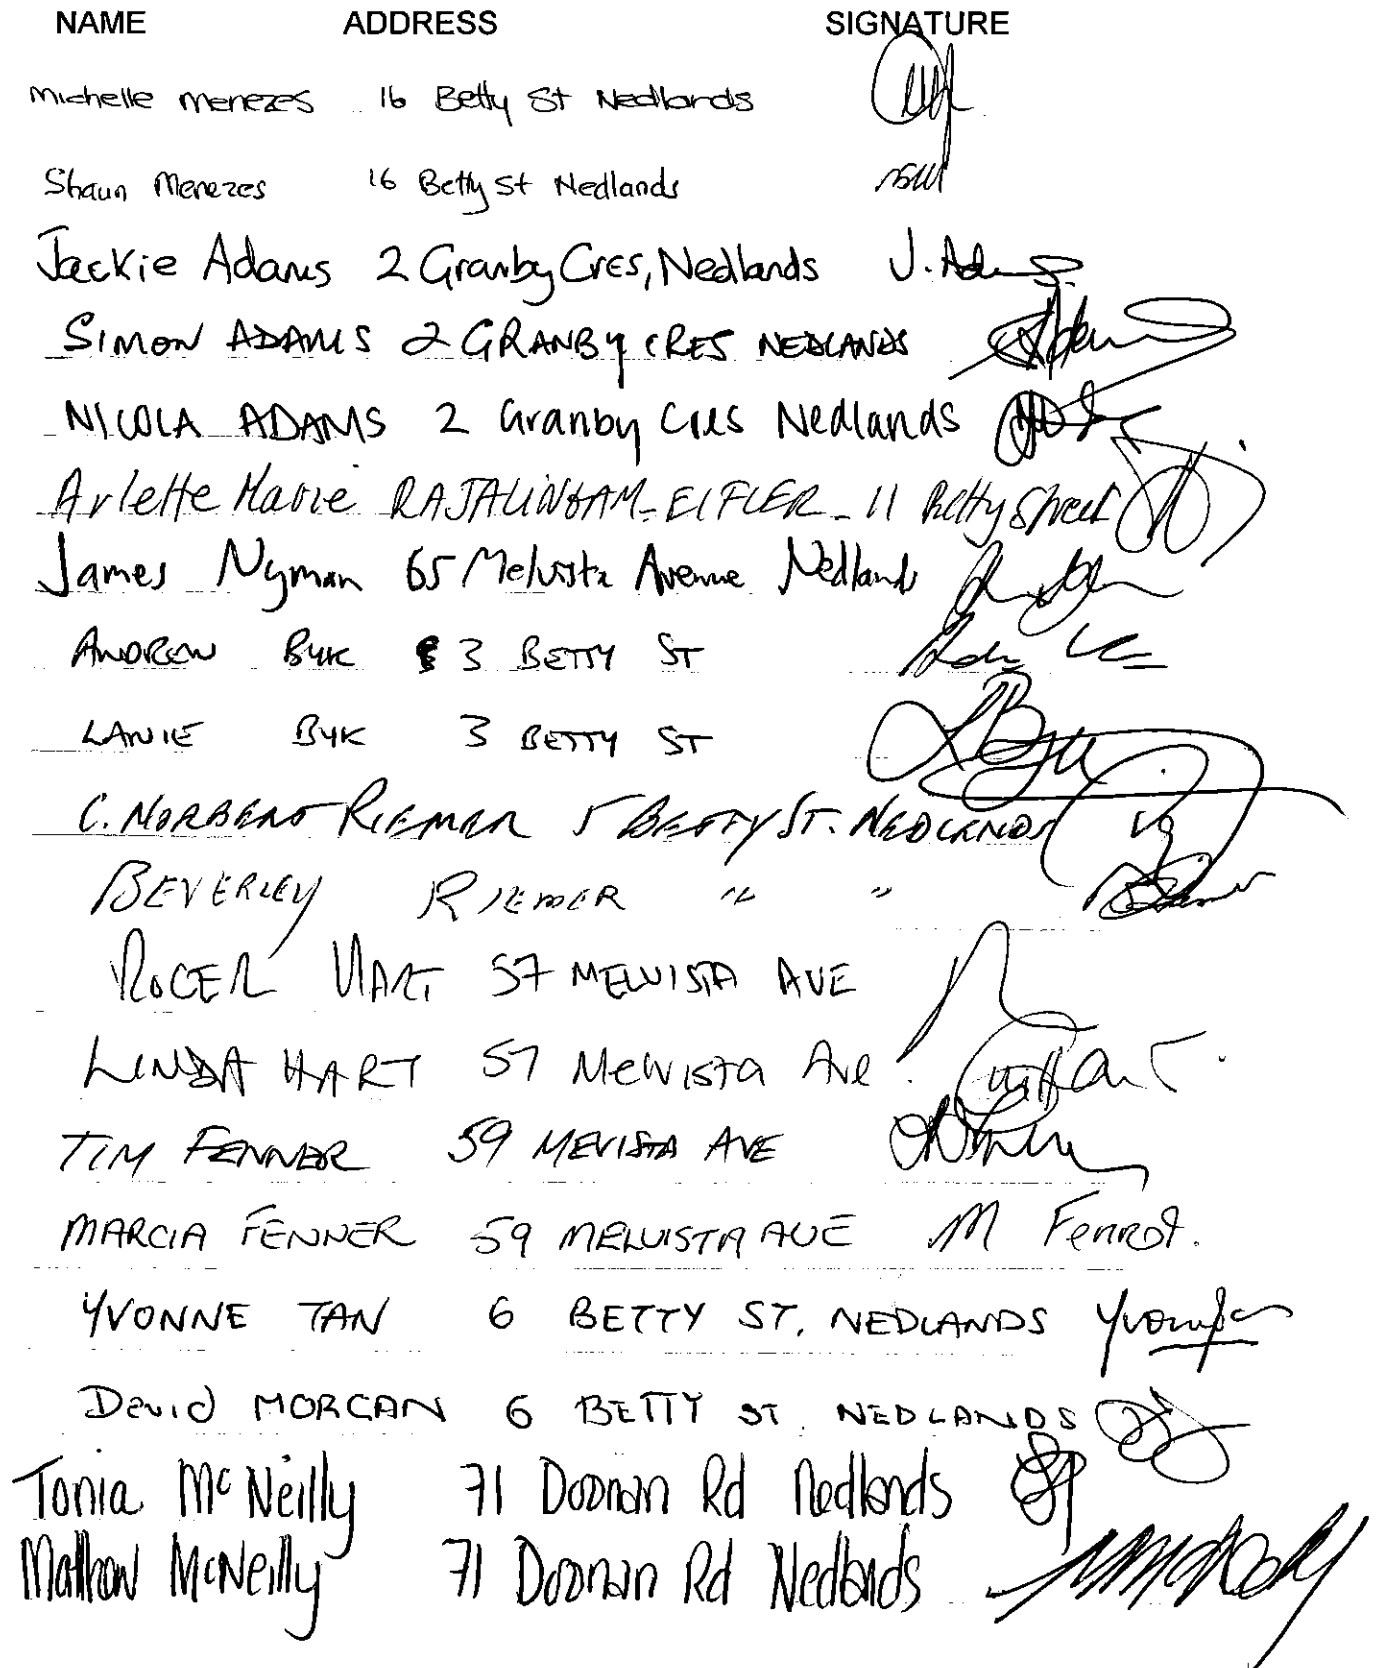 NAME ADDRESS SIGNATURE
Michelle Menezes 16 Betty St Nedlands
Shaun Menezes 16 Betty St Nedlands
Jackie Adams 2 Granby Cres, Nedlands J. Adams
SIMON ADAMS 2 GRANBY CRES NEDLANDS
NICOLA ADAMS 2 Granby Cres Nedlands
Arlette Marie RAJALINGAM-EIFLER - 11 Betty Street
James Nyman 65 Melvista Avenue Nedlands
ANDREW BYK 3 BETTY ST
LANIE BYK 3 BETTY ST L Byk
C. NORBERT RIEMER 5 BETTY ST. NEDLANDS
BEVERLEY RIEMER " "
ROGER HART 57 MELVISTA AVE
LINDA HART 57 Melvista Ave.
TIM FENNER 59 MEVISTA AVE
MARCIA FENNER 59 MELVISTA AVE M Fenner.
YVONNE TAN 6 BETTY ST. NEDLANDS
David MORGAN 6 BETTY ST. NEDLANDS
Tonia McNeilly 71 Doonan Rd Nedlands
Mathow McNeilly 71 Doonan Rd Nedlands